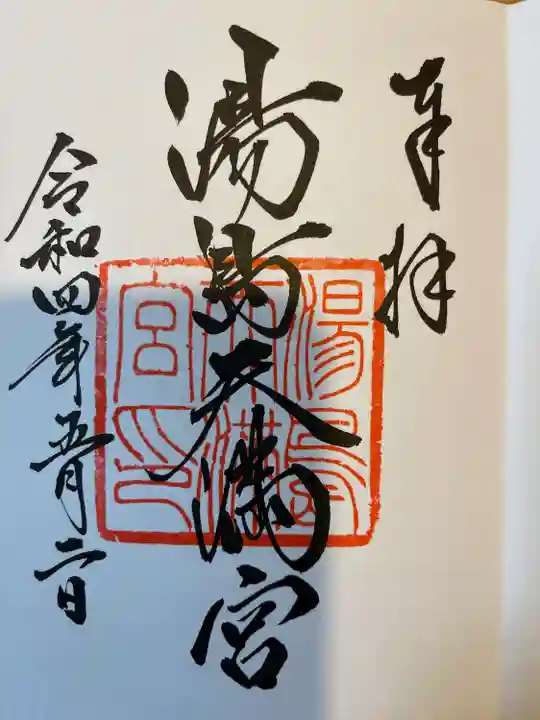 奉拝
湯島天満宮
湯島天満宮印
令和四年五月二日